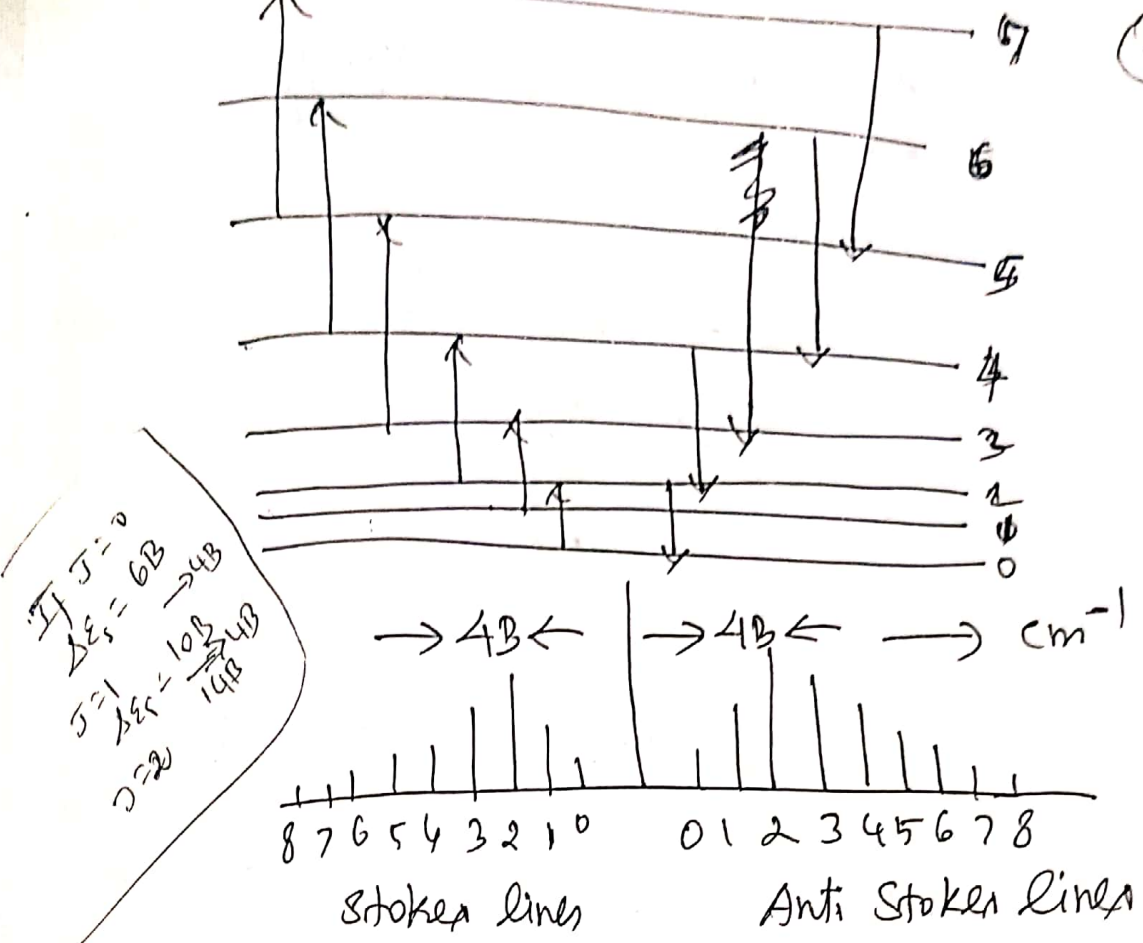 7
6
5
4
3
2
1
0
If J=0
Δε_s = 6B
→4B
J=1
Δε_s = 10B
→4B
14B
J=2
→4B← →4B← → cm⁻¹
8 7 6 5 4 3 2 1 0 0 1 2 3 4 5 6 7 8
Stokes lines Anti Stokes lines